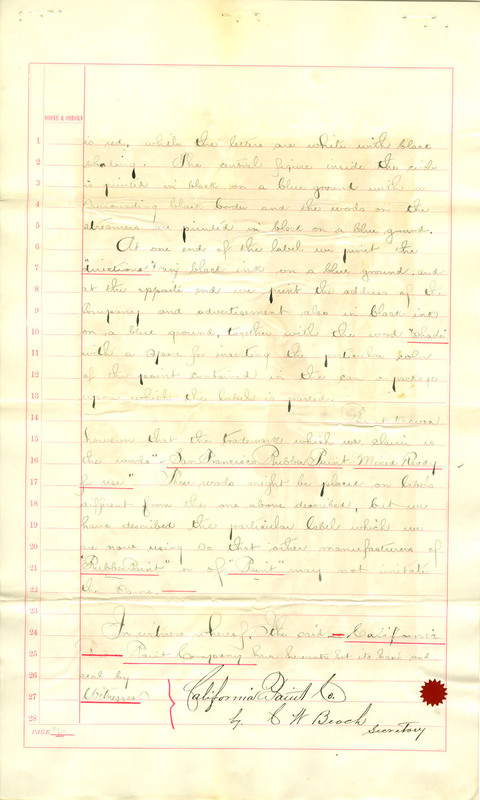 BOONE & OSBORN
1 is red, while the letters are white with black
2 shading. The central figure inside the circle
3 is printed in black on a blue ground with a
4 surrounding black border and the words on the
5 streamers are printed in black on a blue ground.
6 At one end of the label we print the
7 "directions" in black ink on a blue ground and
8 at the opposite end we print the address of the
9 Company and advertisement also in black ink
10 on a blue ground, together with the word "shade"
11 with a space for inserting the particular color
12 of the paint contained in the can or package
13 upon which the label is pasted.
14 
15 however that the trademark which we claim is
16 the words "San Francisco Rubber Paint Mixed Ready
17 for use" These words might be placed on labels
18 different from the one above described, but we
19 have described the particular label which we
20 are now using so that other manufacturers of
21 "Rubber Paint" or of "Paint" may not imitate
22 the same.
23
24 In witness whereof, the said California
25 Paint Company have hereunto set its hand and
26 seal by
27 Witnesses } California Paint Co.
28 by C W Beach
Secretary
PAGE